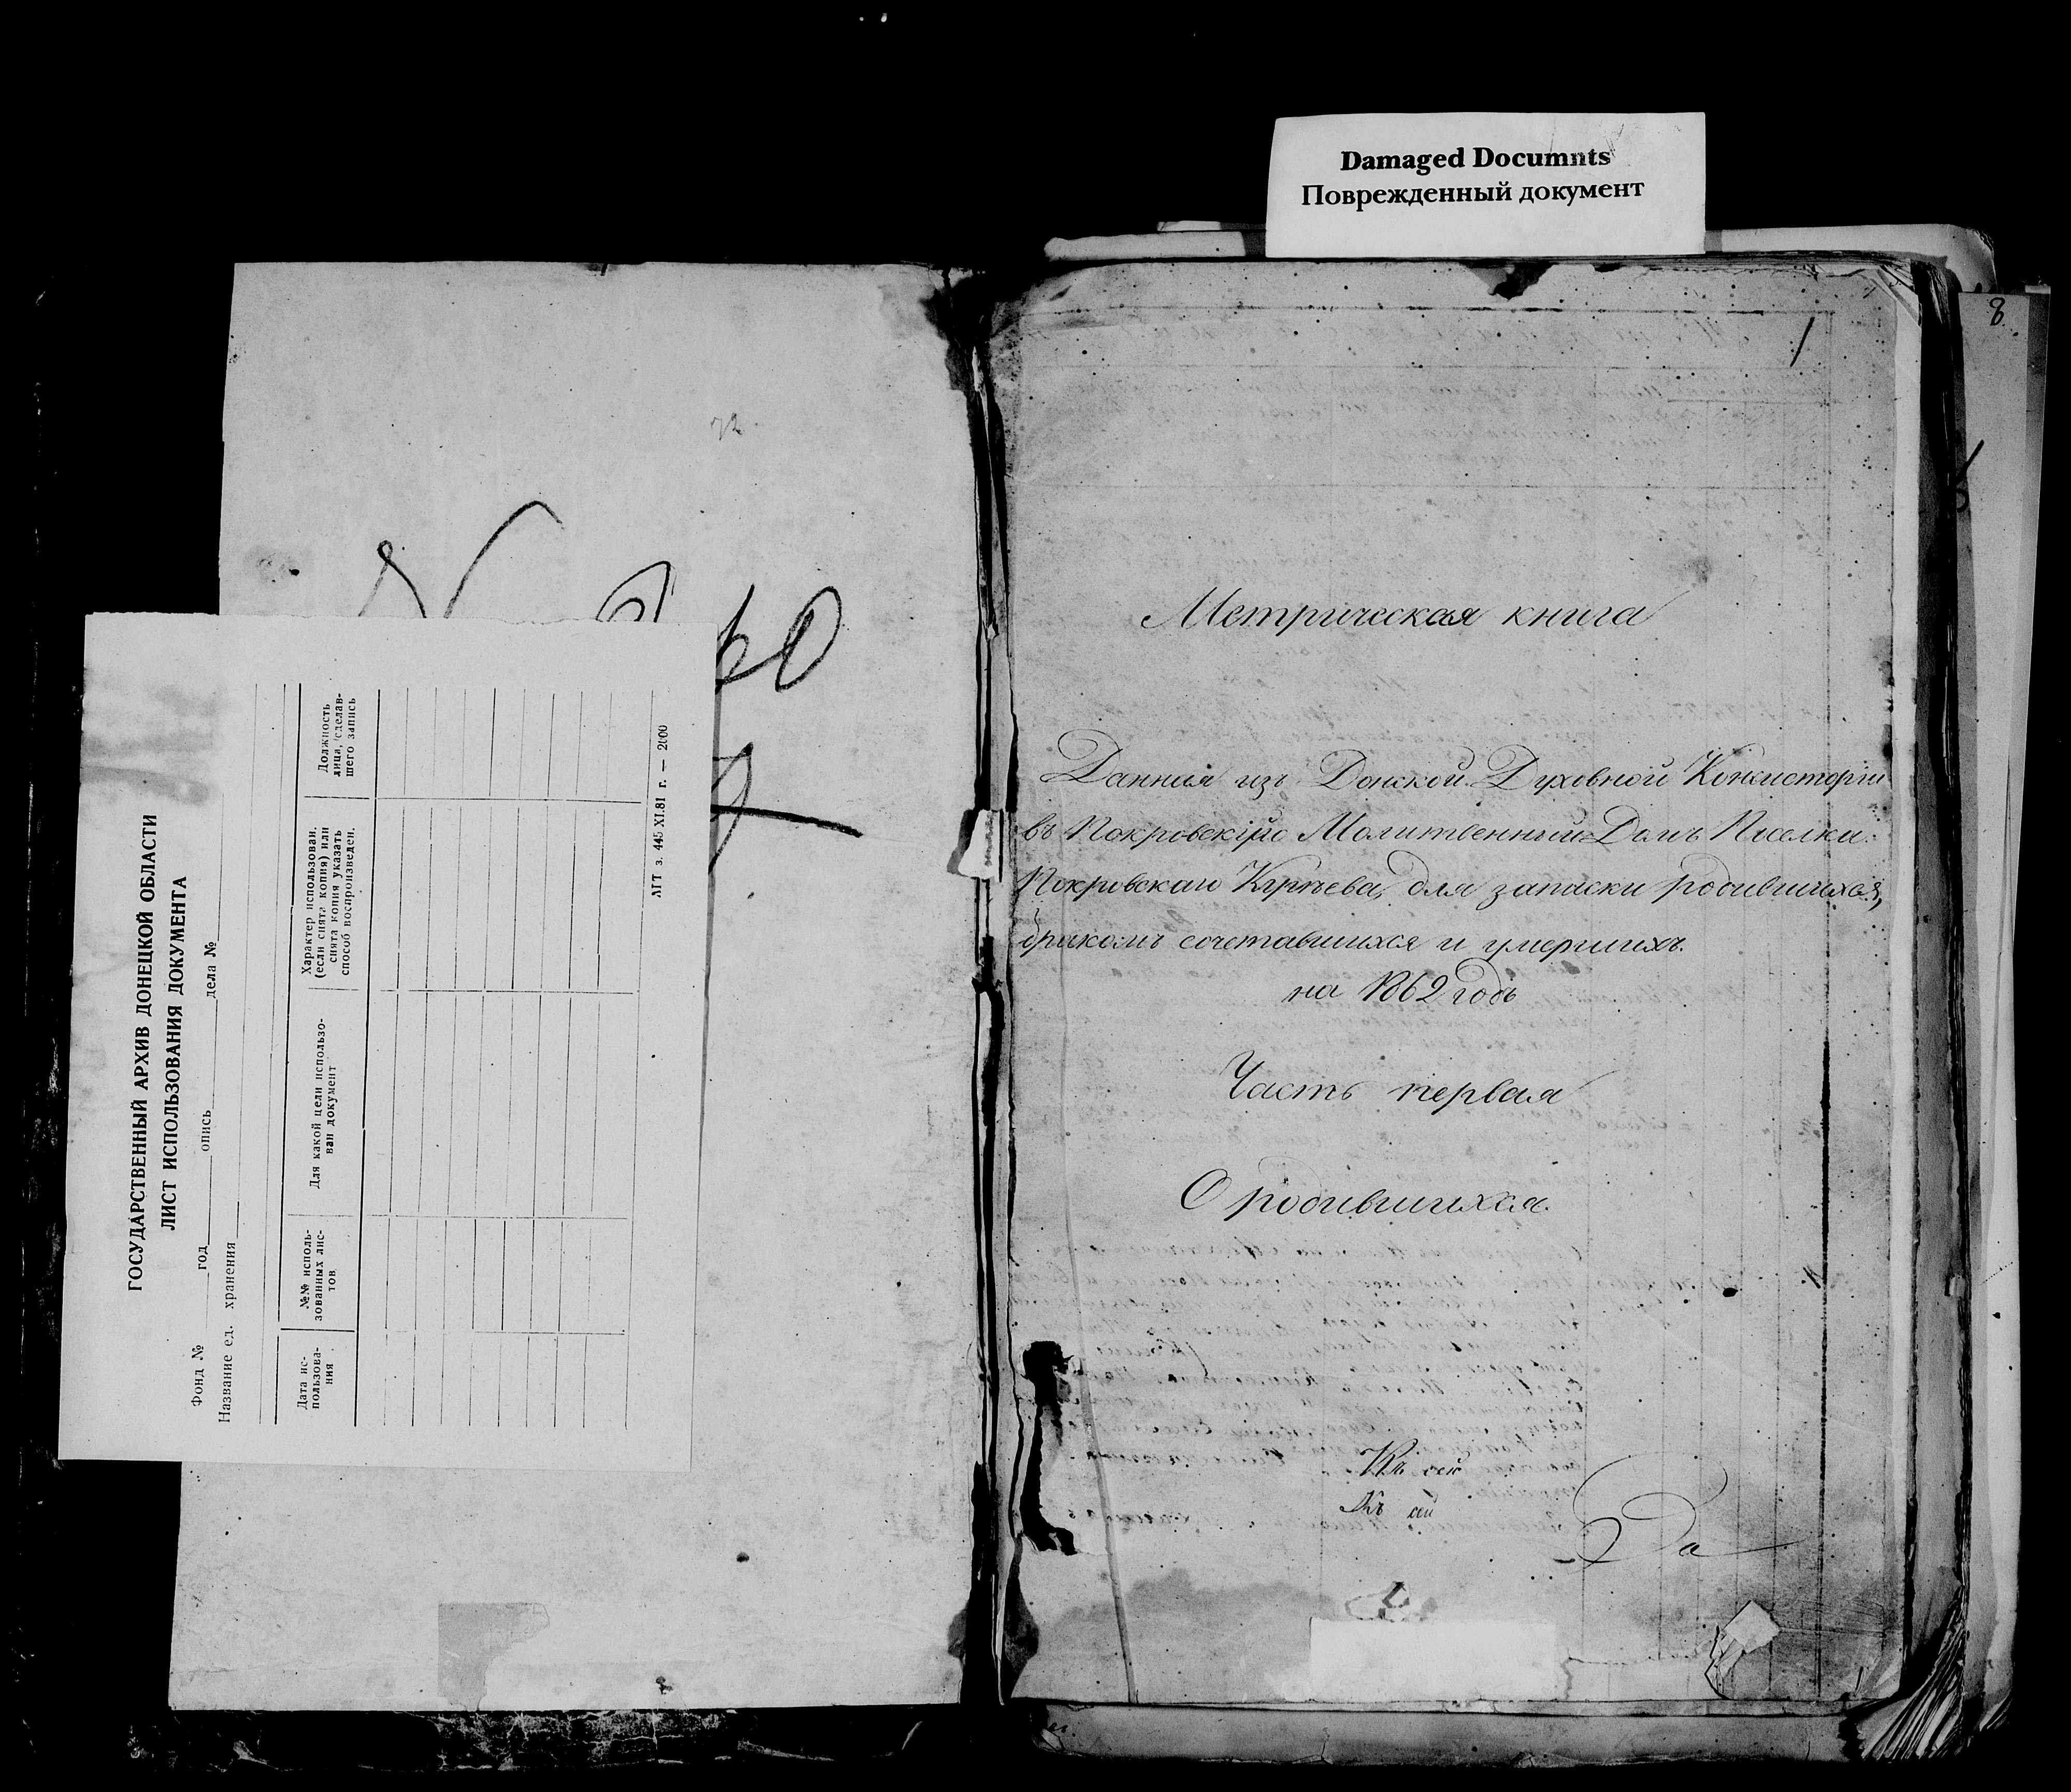 Damaged Documnts
Поврежденный документ
8
1
ГОСУДАРСТВЕННЫЙ АРХИВ ДОНЕЦКОЙ ОБЛАСТИ
ЛИСТ ИСПОЛЬЗОВАНИЯ ДОКУМЕНТА
Фонд № год опись дела №
Название ед. хранения
Дата ис-
пользова-
ния
№№ исполь-
зованных лис-
тов
Для какой цели использо-
ван документ
Характер использован.
(если снята копия) или
снята копия указать
способ воспроизведен.
Должность
лица, сделав-
шего запись
АГТ з. 445 XI.81 г. — 2000
Метрическая книга
Данная изъ Донской Духовной Консисторіи
въ Покровскій Молитвенный Домъ
для записки родившихся,
бракомъ сочетавшихся и умершихъ
на 1862 годъ
Часть первая
О родившихся.